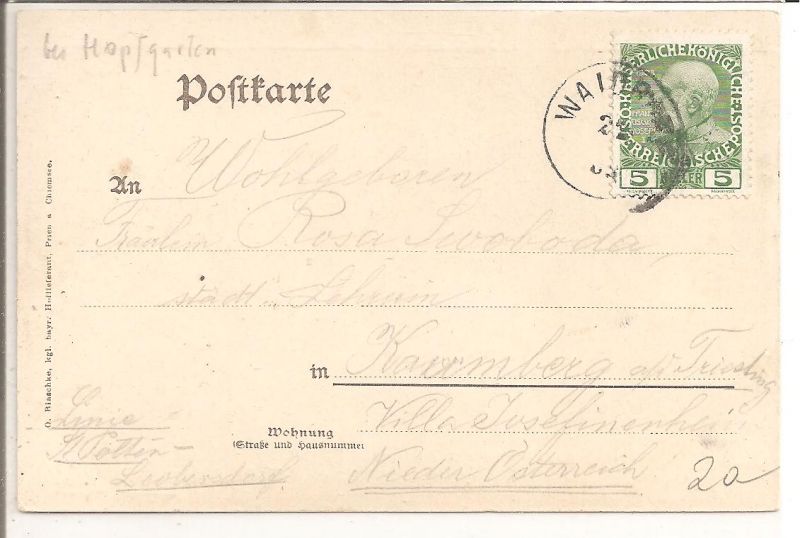 bei Hopfgarten
Postkarte
KAISERLICHE KÖNIGLICHE
ÖSTERREICHISCHE POST
FRANZ
JOSEPH I
5 HELLER 5
WAIDR
An Wohlgeboren
Fräulein Rosa Swoboda,
städt. Lehrerin
in Kaumberg a/d Triesting
Villa Josefinenhei
Wohnung
(Straße und Hausnummer
Nieder Österreich
Linie
St Pölten-
Leobersdorf
20
O. Blaschke, kgl. bayr. Hoflieferant, Prien a Chiemsee.